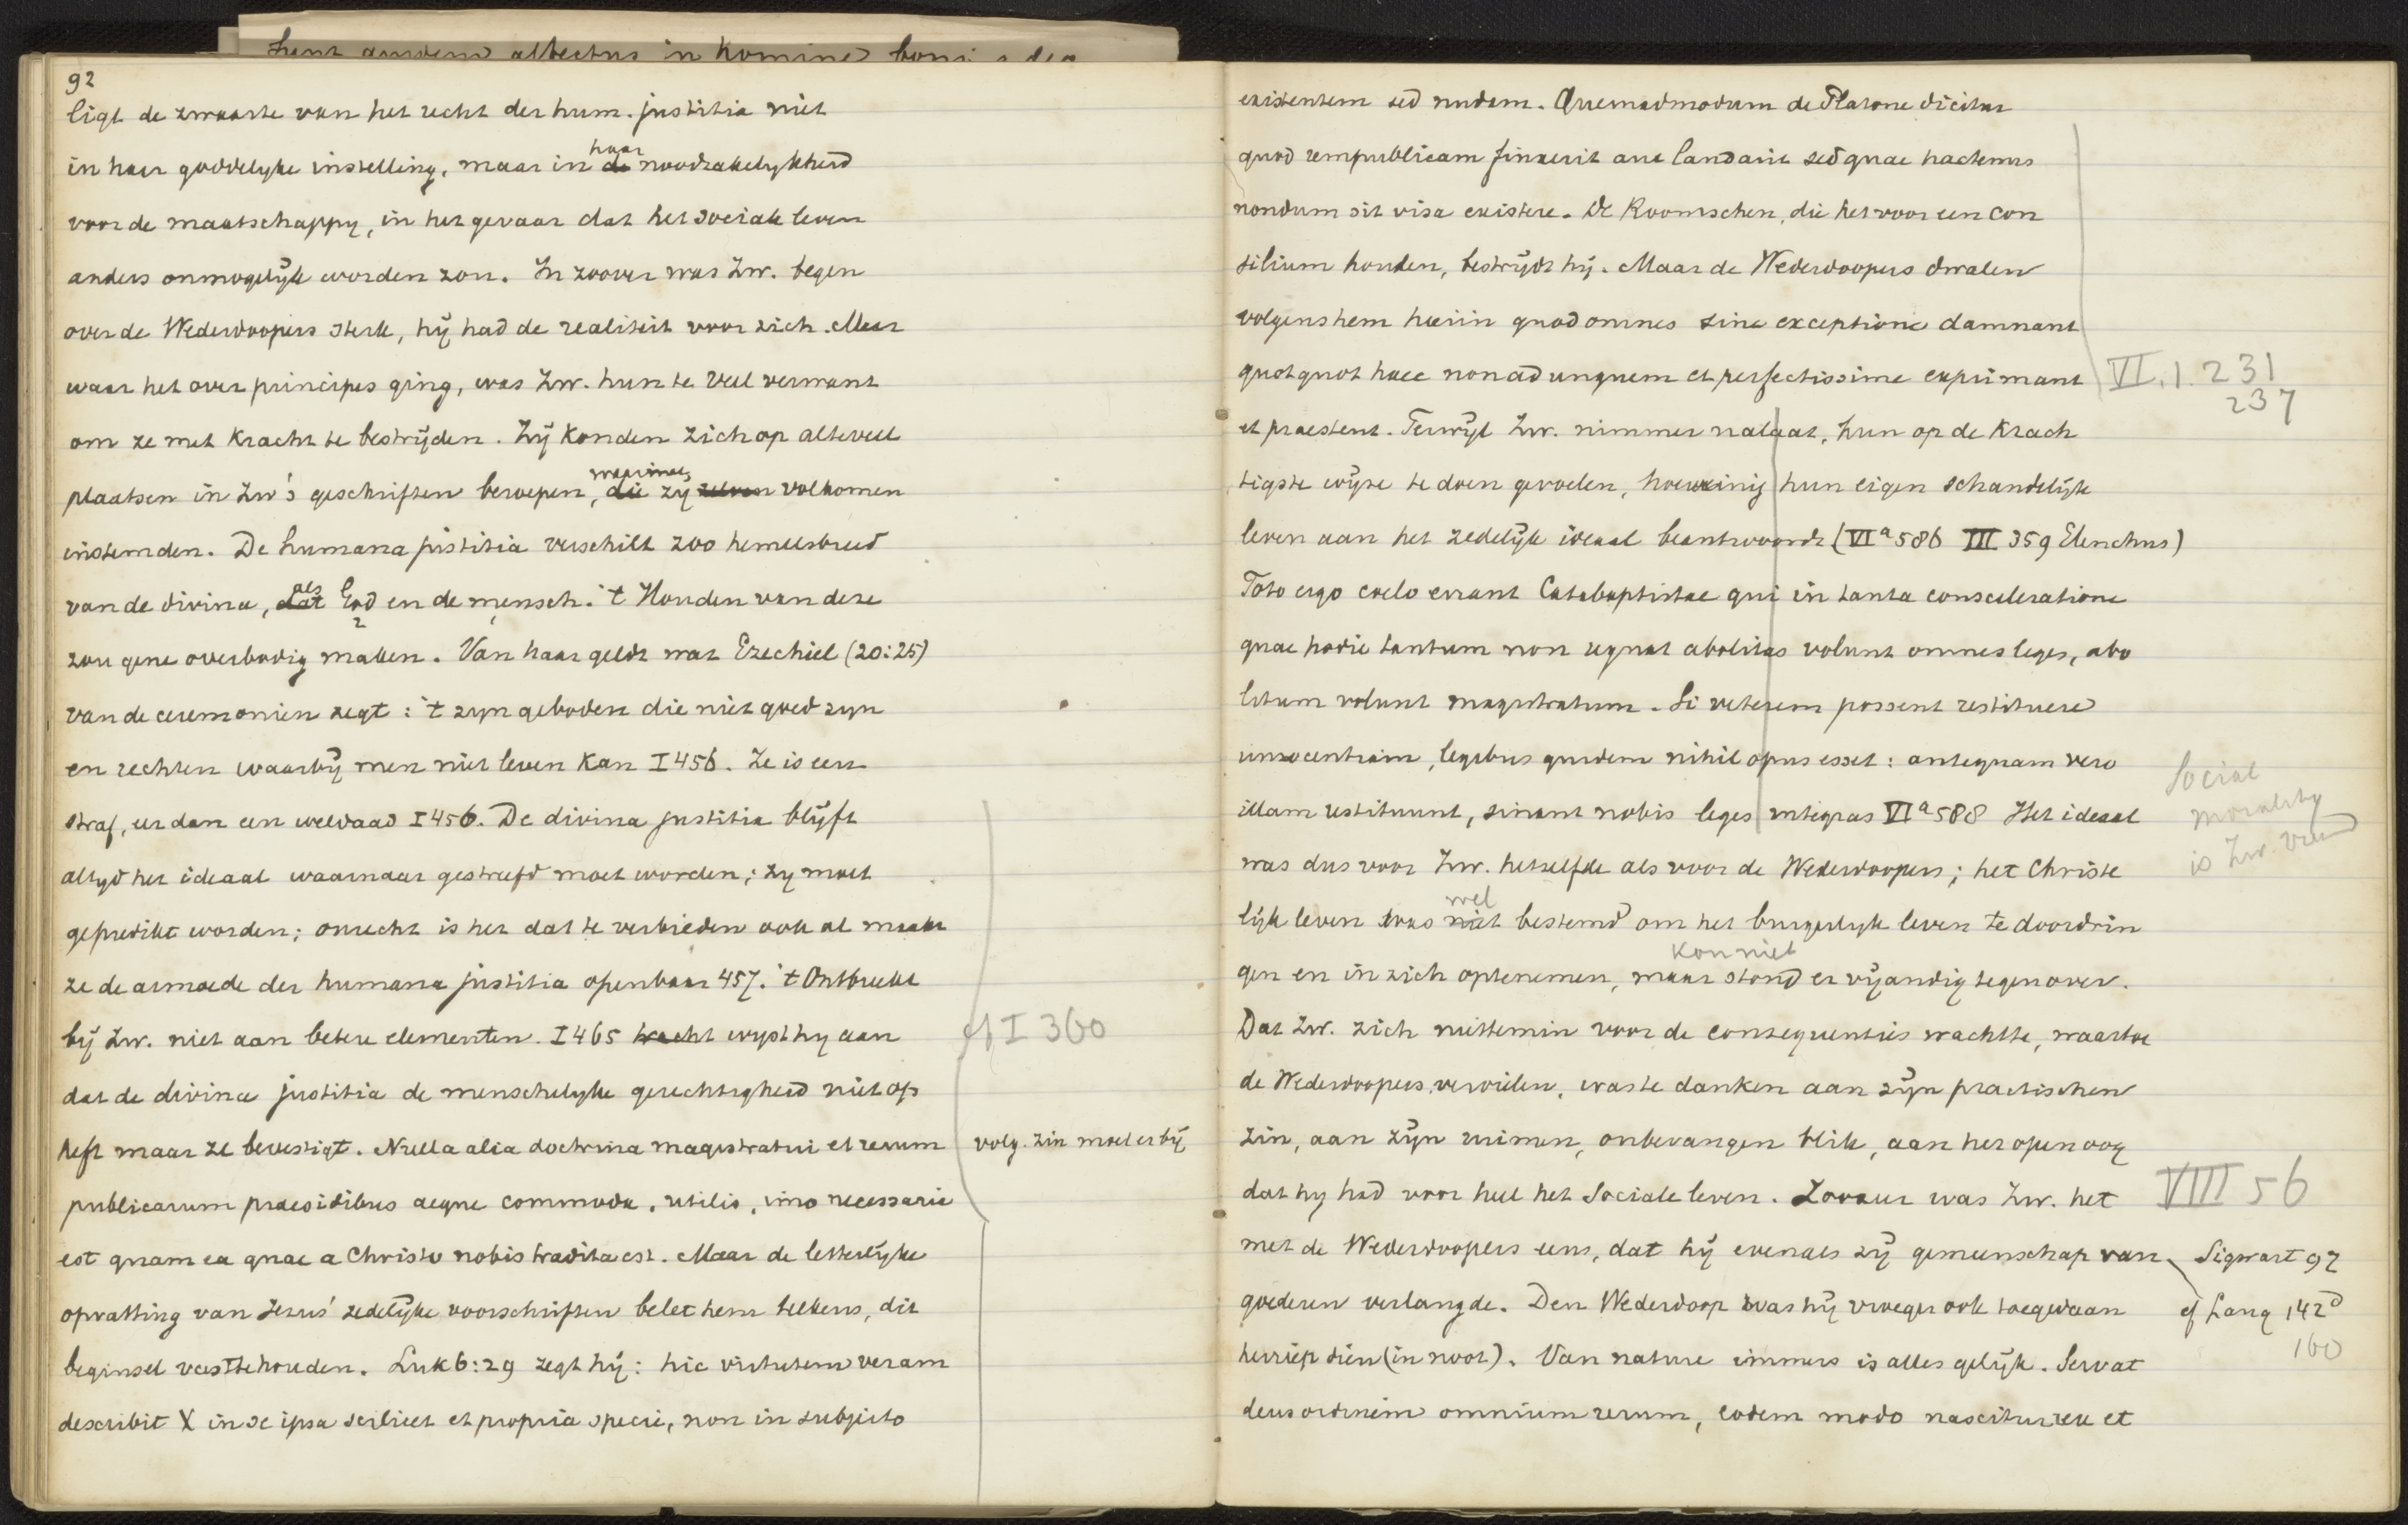 92
ligt de zwaarte van het recht der hum. justitia niet
in haar goddelyke instelling, maar in de haar noodzakelykheid
voor de maatschappy, in het gevaar dat het sociale leven
anders onmogelijk worden zou. In zoover was Zw. tegen
over de Wederdoopers sterk, hij had de realiteit voor zich. Maar
waar het over principes ging, was Zw. hun te veel verwant
om ze met kracht te bestrijden. Zij konden zich op alteveel
plaatsen in Zw's geschriften beroepen, die waarmee zij zelven volkomen
instemden. De humana justitia verschilt zoo hemelsbreed
van de divina, dat als God en de mensch. 't Houden van deze
zou gene overbodig maken. Van haar geldt wat Ezechiel (20:25)
van de ceremonien zegt: 't zyn geboden die niet goed zyn
en rechten waarbij men niet leven kan I 456. Ze is eer
straf, er dan een weldaad I 456. De divina justitia blijft
altyd het ideaal waarnaar gestreefd moet worden; zy moet
gepredikt worden; onrecht is het dat te verbieden ook al maakt
ze de armoede der humana justitia openbaar 457. 't Ontbreekt
bij Zw. niet aan betere elementen. I 465 wyst hy aan
dat de divina justitia de menschelyke gerechtigheid niet op
heft maar ze bevestigt. Nulla alia doctrina magistratui et rerum
publicarum praesidibus aeque commoda, utilis, imo necessaria
est quam ea quae a Christo nobis tradita est. Maar de letterlyke
opvatting van Jezus' zedelijke voorschriften belet hem telkens, dit
beginsel vasttehouden. Luk 6:29 zegt hij: hic virtutem veram
describit X in se ipsa scilicet et propria specie, non in subjecto
cf I 360
volg. zin moet er bij
existentem sed nudam. Quemadmodum de Platone dicitur
quod rempublicam finxerit aut laudarit sed quae hactenus
nondum sit visa existere. De Roomschen, die het voor een con
silium houden, bestrijdt hij. Maar de Wederdoopers dwalen
volgens hem hierin quod omnes sine exceptione damnant
quotquot haec non ad unguem et perfectissime exprimant
et praestent. Terwijl Zw. nimmer nalaat, hun op de krach
tigste wijze te doen gevoelen, hoe weinig hun eigen schandelijk
leven aan het zedelijk ideaal beantwoordt (VI a 586 III 359 Elenchus)
Toto ergo coelo errant Catabaptistae qui in tanta consceleratione
quae hodie tantum non regnat abolitas volunt omnes leges, abo
litum volunt magistratum. Si veterem possent restituere
innocentiam, legibus quidem nihil opus esset: antequam vero
illam restituunt, sinant nobis leges integras VI a 588 Het ideaal
was dus voor Zw. hetzelfde als voor de Wederdoopers; het Christe
lijk leven was niet wel bestemd om het burgerlyk leven te doordrin
gen en in zich optenemen, maar kon niet stond er vijandig tegenover.
Dat Zw. zich niettemin voor de consequenties wachtte, waartoe
de Wederdoopers vervielen, was te danken aan zijn practischen
zin, aan zijn ruimen, onbevangen blik, aan het open oog
dat hy had voor heel het Sociale leven. Zoover was Zw. het
met de Wederdoopers eens, dat hij evenals zij gemeenschap van
goederen verlangde. Den Wederdoop was hij vroeger ook toegedaan
herriep dien (in noot). Van nature immers is alles gelijk. Servat
deus ordinem omnium rerum, eodem modo nascitur rex et
VI.1. 231
237
Social
morality
is Zw.
VIII 56
Sigwart 92
cf Lang 142
160